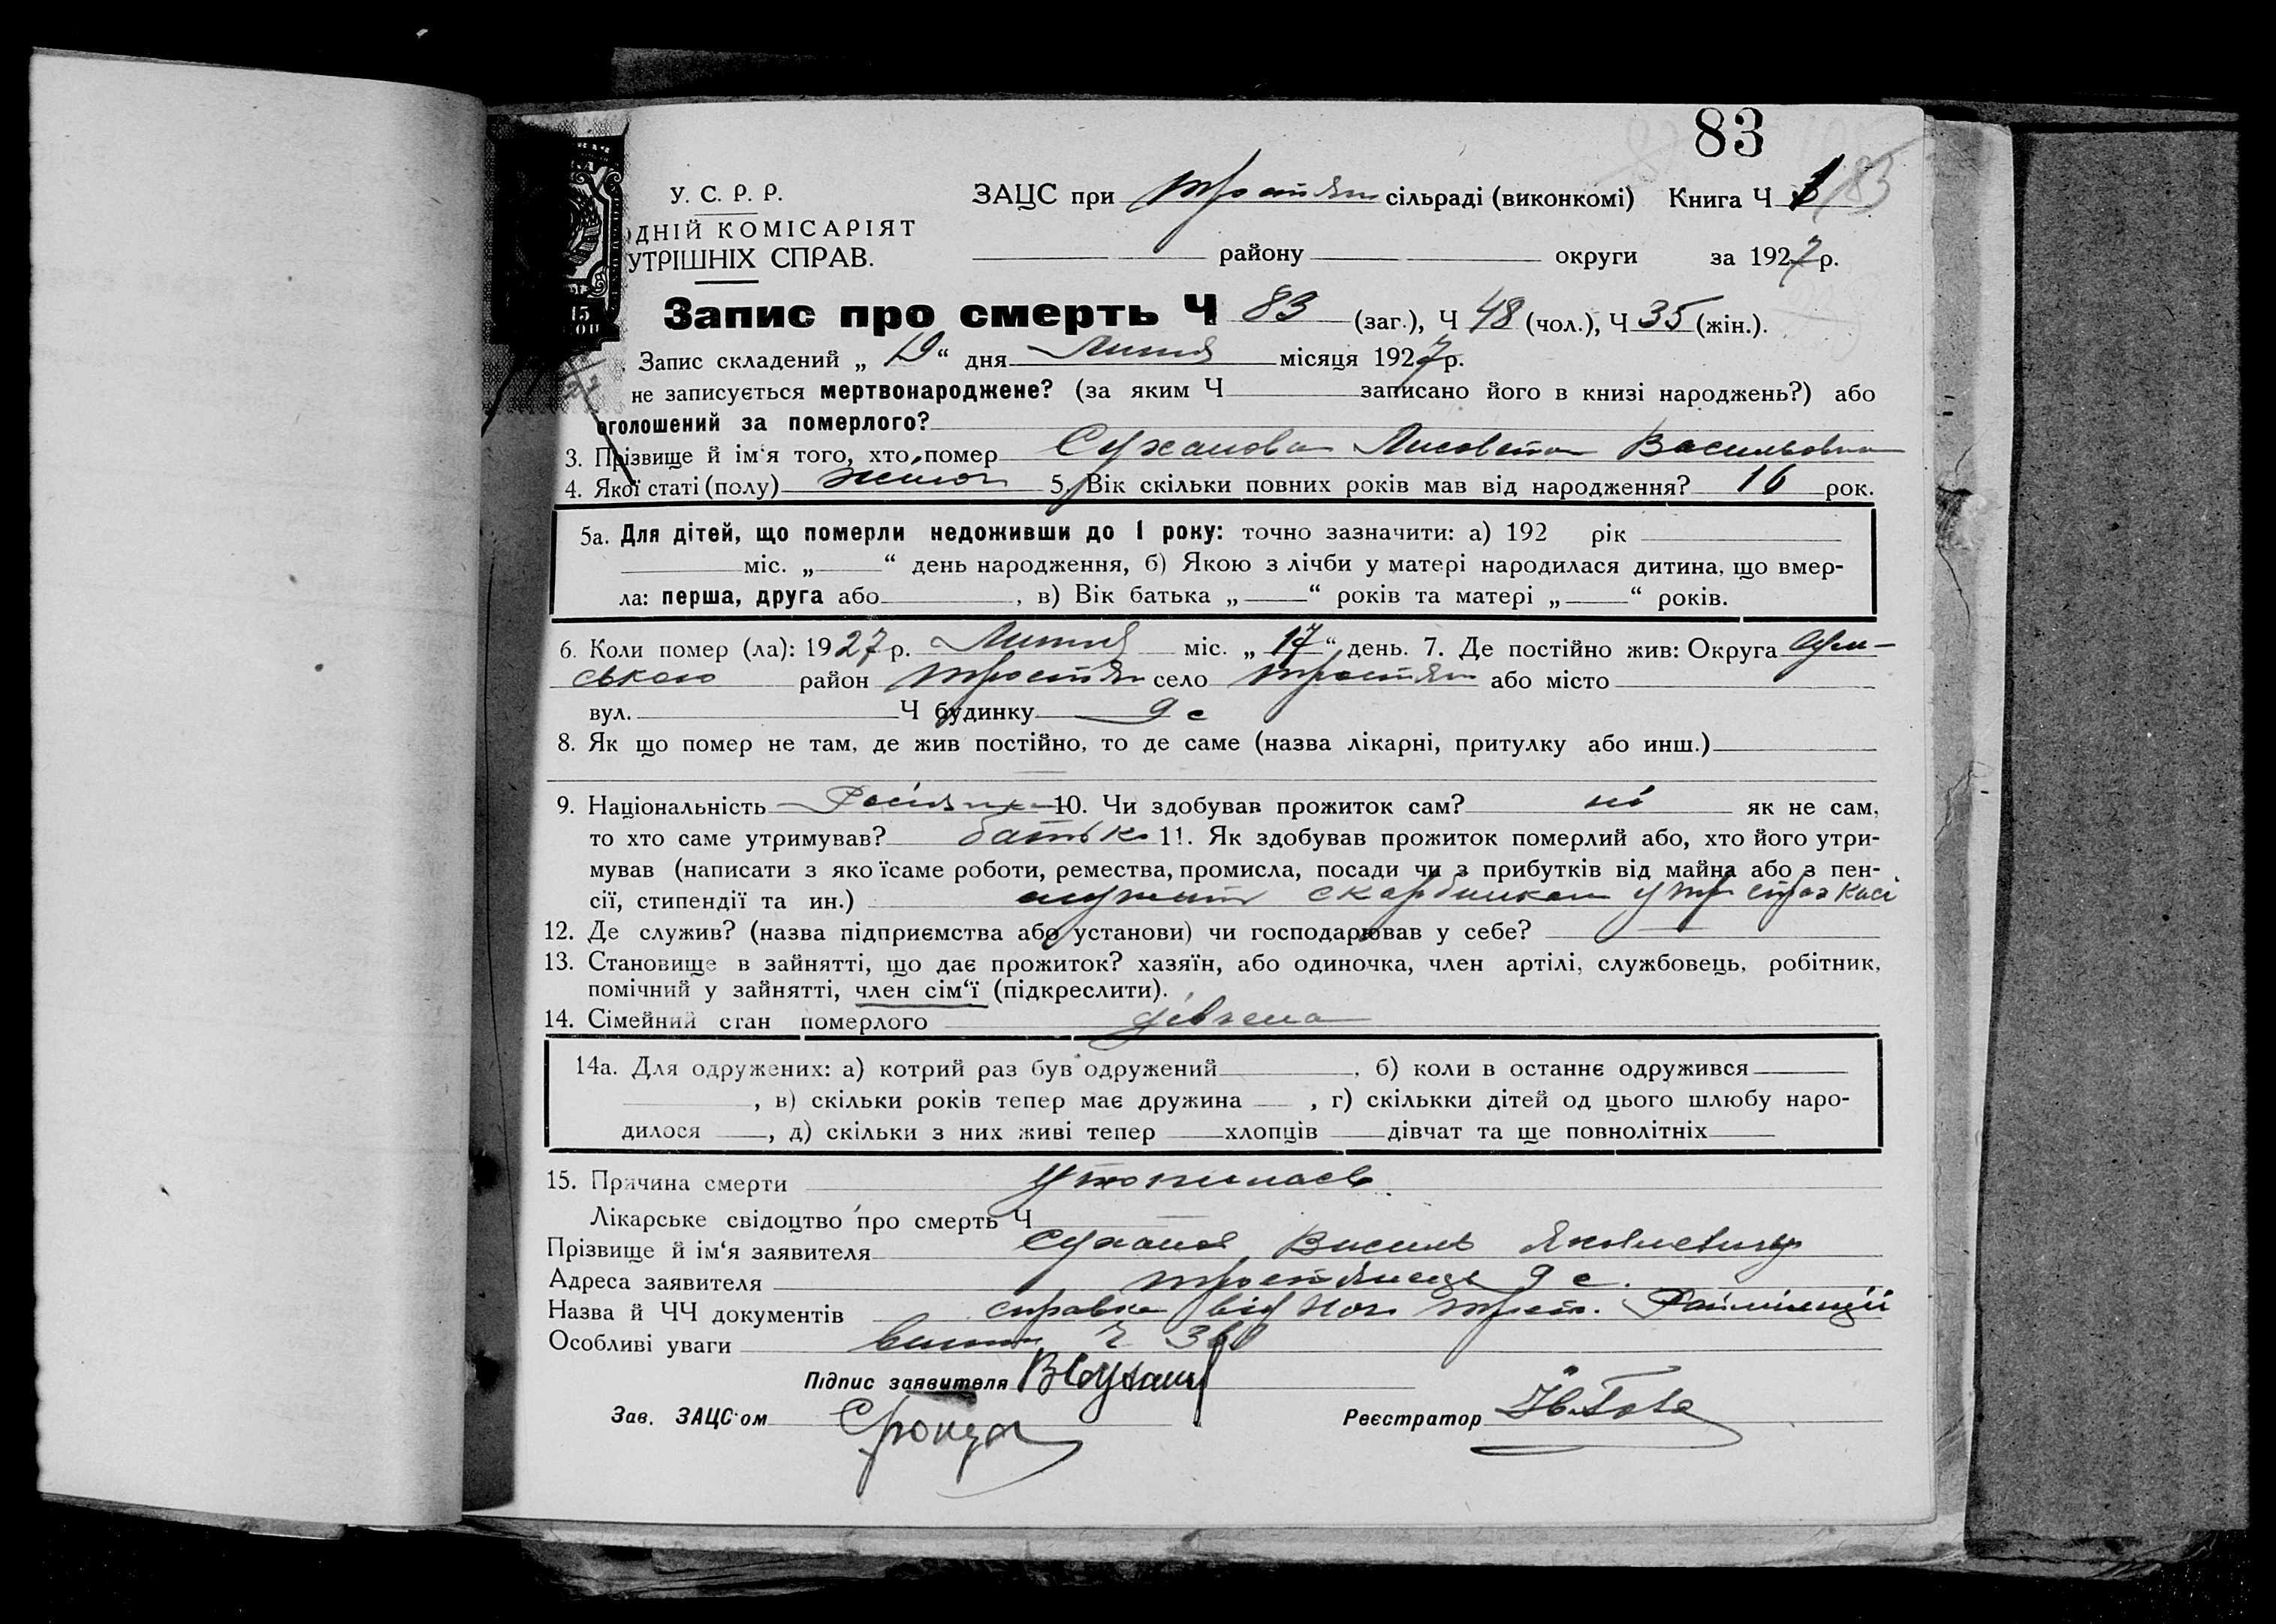 83
У. С. Р. Р.
ЗАЦС при Тростян сільраді (виконкомі) Книга Ч 1 83
ОДНІЙ КОМІСАРІЯТ
УТРІШНІХ СПРАВ.
району округи за 1927 р.
15
Запис про смерть Ч 83 (заг.), Ч 48 (чол.), Ч 35 (жін.).
Запис складений „ 19 “ дня Липня місяця 1927 р.
не записується мертвонароджене? (за яким Ч записано його в книзі народжень?) або
оголошений за померлого?
3. Прізвище й ім'я того, хто помер Суханова Лисовета Васильовна
4. Якої статі (полу) жіноч 5. Вік скільки повних років мав від народження? 16 рок.
5а. Для дітей, що померли недоживши до 1 року: точно зазначити: а) 192 рік
міс. „ “ день народження, б) Якою з лічби у матері народилася дитина, що вмер-
ла: перша, друга або , в) Вік батька „ “ років та матері „ “ років.
6. Коли помер (ла): 1927 р. Липня міс. „ 17 “ день. 7. Де постійно жив: Округа Сум-
ського район Тростян село Тростян або місто
вул. Ч будинку 9 с
8. Як що помер не там, де жив постійно, то де саме (назва лікарні, притулку або инш.)
9. Національність Росіянка 10. Чи здобував прожиток сам? ні як не сам,
то хто саме утримував? батько 11. Як здобував прожиток померлий або, хто його утри-
мував (написати з якоїсаме роботи, ремества, промисла, посади чи з прибутків від майна або з пен-
сії, стипендії та ин.) служит скарбником у Тр страх касі
12. Де служив? (назва підприємства або установи) чи господарював у себе?
13. Становище в зайнятті, що дає прожиток? хазяїн, або одиночка, член артілі, службовець, робітник,
помічний у зайнятті, член сім‘ї (підкреслити).
14. Сімейний стан померлого дівчена
14а. Для одружених: а) котрий раз був одружений , б) коли в останнє одружився
, в) скільки років тепер має дружина , г) скількки дітей од цього шлюбу наро-
дилося , д) скільки з них живі тепер хлопців дівчат та ще повнолітніх
15. Причина смерти утопилась
Лікарське свідоцтво про смерть Ч
Прізвище й ім‘я заявителя Суханов Василь Яковлевич
Адреса заявителя Тростянець 9 с.
Назва й ЧЧ документів справка від Трост. Райміліції
Особливі уваги Ч
Підпис заявителя ВСухан
Зав. ЗАЦС'ом
Реєстратор